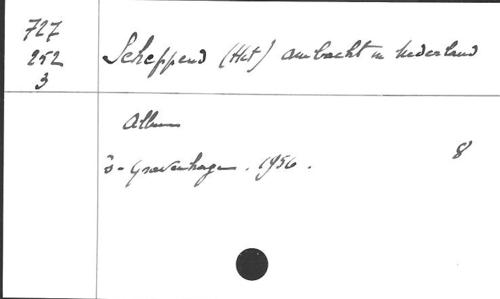 727
252
3
Scheppend (Het) ambacht in Nederland
Album
's-Gravenhage. 1956.
8